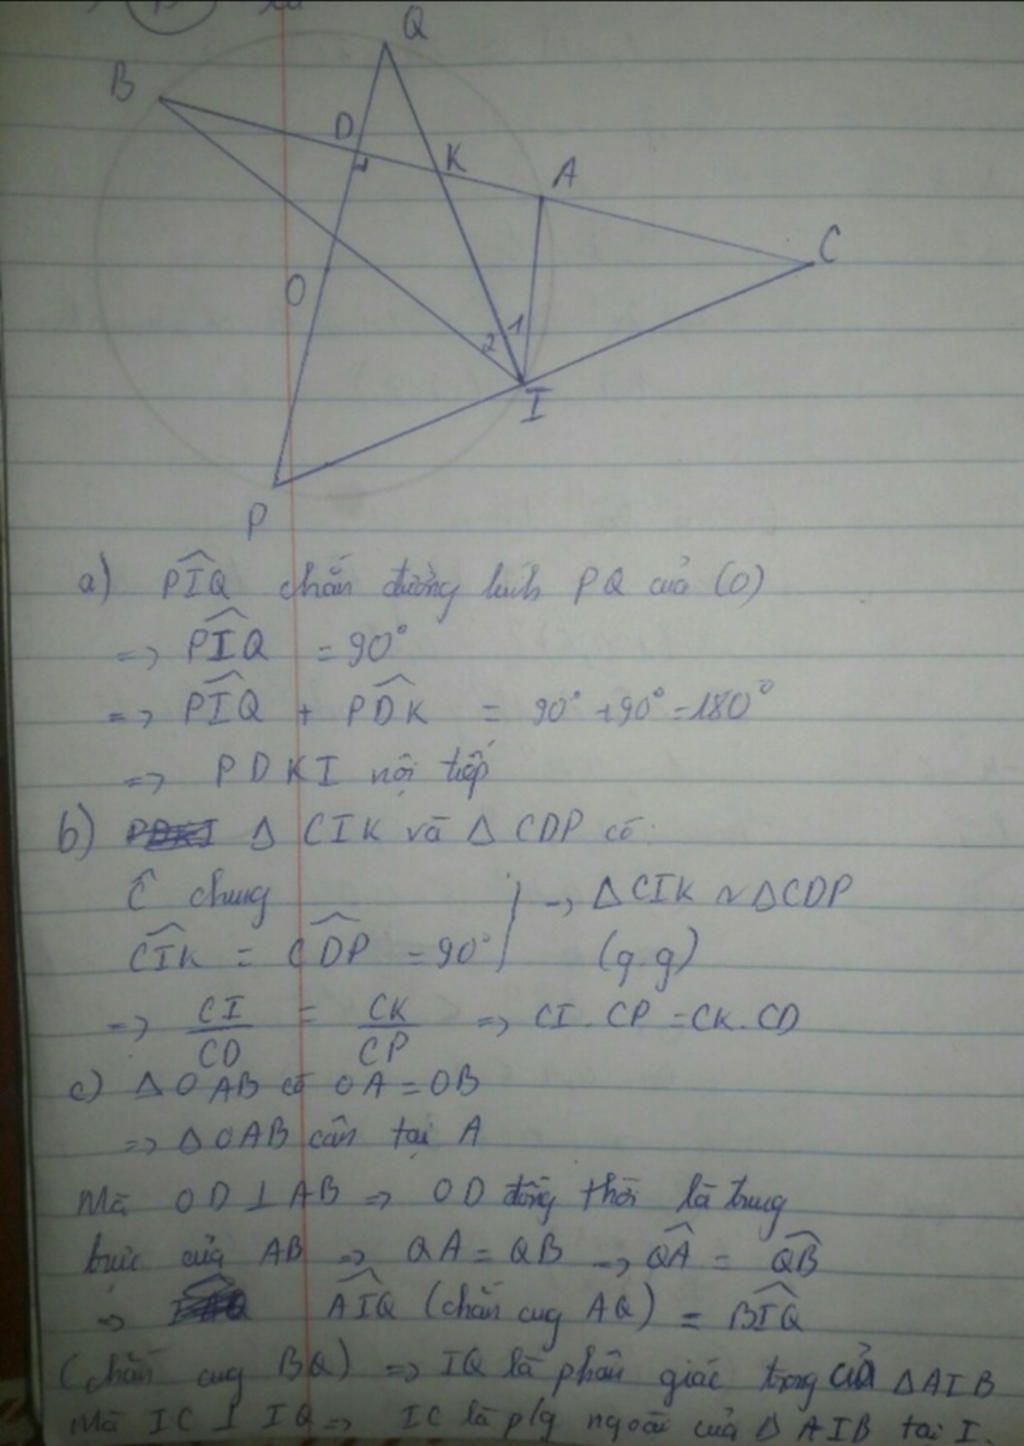 Q
B
D
K
A
C
O
2
1
I
P
a) PIQ chắn đường kính PQ của (O)
=> PIQ = 90°
=> PIQ + PDK = 90° + 90° = 180°
=> PDKI nội tiếp
b) Δ CIK và Δ CDP có:
Ĉ chung
-> ΔCIK ~ ΔCDP
CIK = CDP = 90°
(g.g)
=> CI/CD = CK/CP => CI.CP = CK.CD
c) Δ OAB có OA = OB
=> Δ OAB cân tại A
Mà OD ⊥ AB => OD đồng thời là trung
trực của AB => QA = QB -> QA = QB
=> AIQ (chắn cug AQ) = BIQ
(chắn cug BQ) => IQ là phân giác trong của ΔAIB
Mà IC ⊥ IQ => IC là p/g ngoài của Δ AIB tại I.